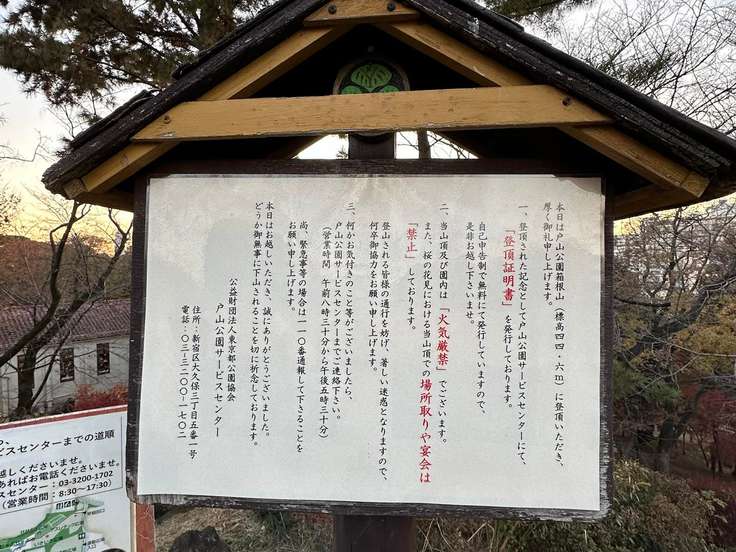 本日は戸山公園箱根山(標高四四・六m)に登頂いただき、
厚く御礼申し上げます。
一、登頂された記念として戸山公園サービスセンターにて、
「登頂証明書」を発行しております。
自己申告制で無料にて発行していますので、
是非お越し下さいませ。
二、当山頂及び園内は「火気厳禁」でございます。
また、桜の花見における当山頂での場所取りや宴会は
「禁止」しております。
登山される皆様の通行を妨げ、著しい迷惑となりますので、
何卒御協力をお願い申し上げます。
三、何かお気付きのこと等がございましたら、
戸山公園サービスセンターまでご連絡下さい。
(営業時間 午前八時三十分から午後五時三十分)
尚、緊急事等の場合は一一〇番通報して下さることを
お願い申し上げます。
本日はお越しいただき、誠にありがとうございました。
どうか御無事に下山されることを切に祈念しております。
公益財団法人東京都公園協会
戸山公園サービスセンター
住所:新宿区大久保三丁目五番一号
電話:〇三-三二〇〇-一七〇二
ビスセンターまでの道順
越しくださいませ。
あればお電話くださいませ。
スセンター:03-3200-1702
(営業時間:8:30~17:30)